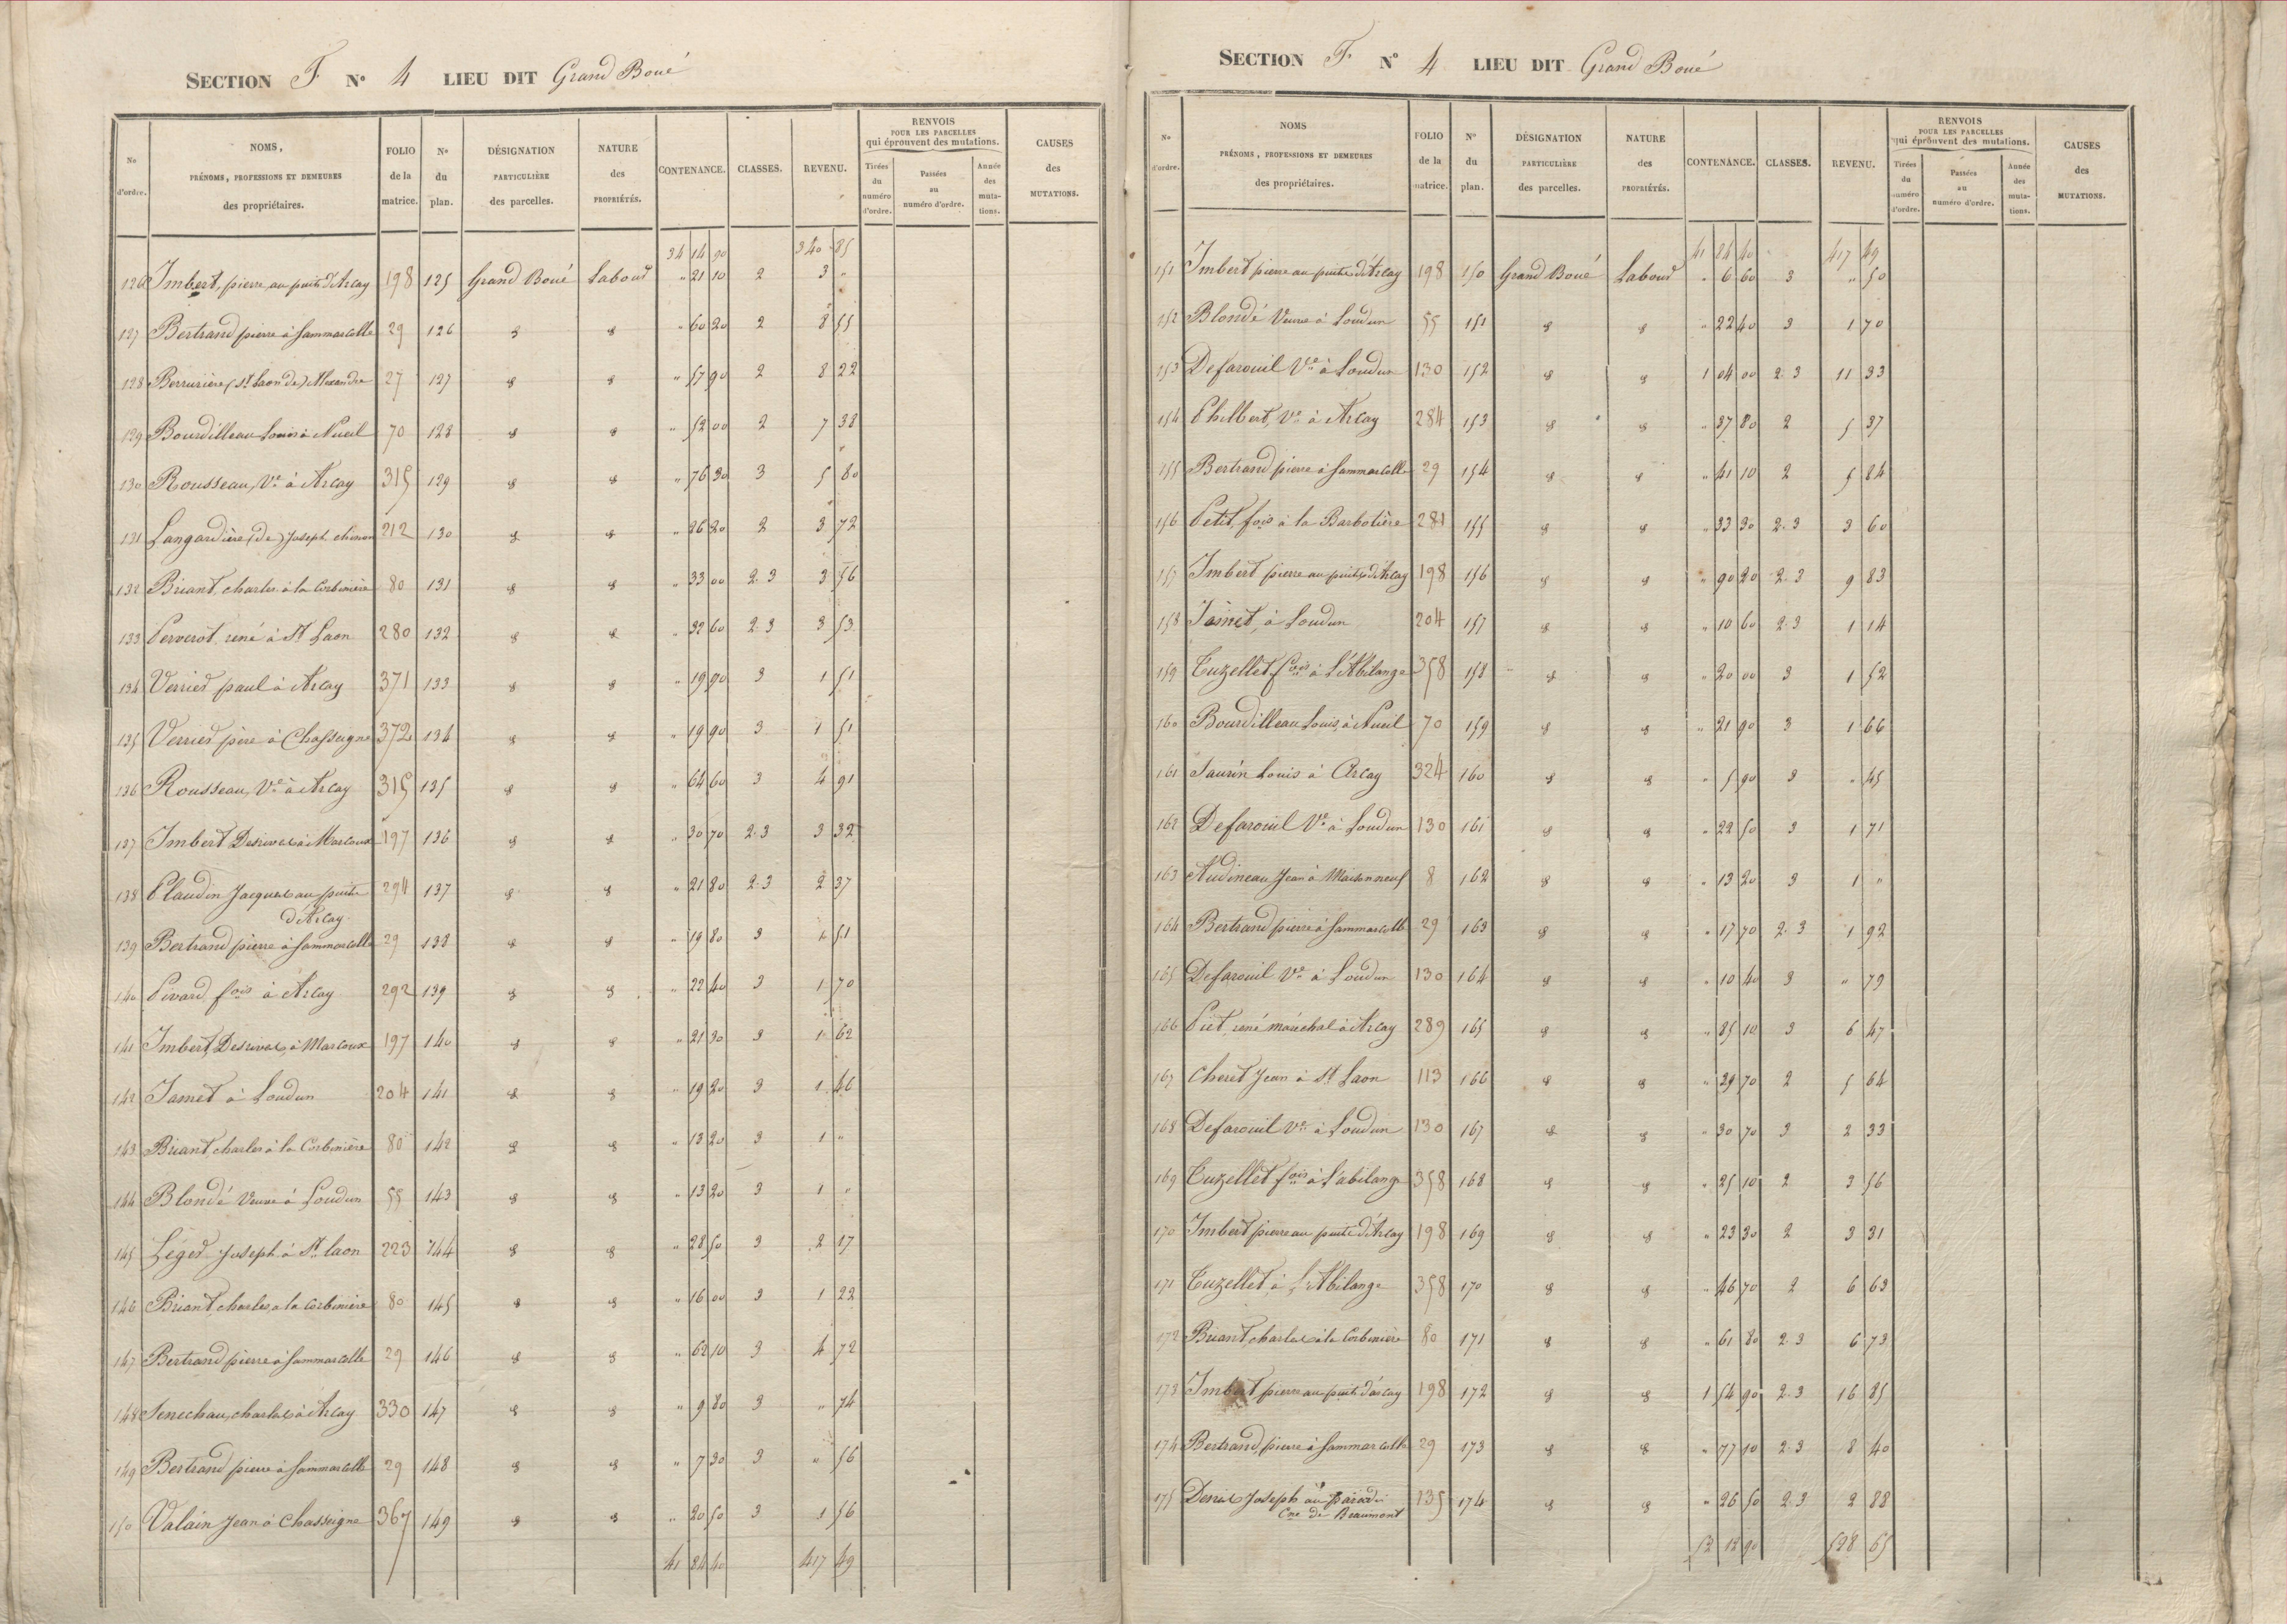 SECTION F N° 4 LIEU DIT Grand Boué
No d'ordre. | NOMS, PRÉNOMS, PROFESSIONS ET DEMEURES des propriétaires. | FOLIO de la matrice. | No du plan. | DÉSIGNATION PARTICULIÈRE des parcelles. | NATURE des PROPRIÉTÉS. | CONTENANCE. | CLASSES. | REVENU. | RENVOIS POUR LES PARCELLES qui éprouvent des mutations. Tirées du numéro d'ordre. | Passées au numéro d'ordre. | Année des mutations. | CAUSES des MUTATIONS.
34 14 90 340 85
126 Imbert, pierre, au puits d'Arcay 198 125 Grand Boué Labour " 21 10 2 3 "
127 Bertrand pierre à Sammarcolle 29 126 " 60 20 2 8 55
128 Berrurière (St Laon de) Alexandre 27 127 " 57 90 2 8 22
129 Bourdilleau Louis à Nueil 70 128 " 52 00 2 7 38
130 Rousseau, Ve à Arcay 315 129 " 76 30 3 5 80
131 Langardière (de) Joseph chinon 212 130 " 26 20 2 3 72
132 Briant, charles à la Corbinière 80 131 " 33 00 2.3 3 56
133 Perverot, rené à St Laon 280 132 " 32 60 2.3 3 53
134 Verrier paul à Arcay 371 133 " 19 90 3 1 51
135 Verrier père à Chasseigne 372 134 " 19 90 3 1 51
136 Rousseau, Ve à Arcay 315 135 " 64 60 3 4 91
137 Imbert Desrives à Marcoux 197 136 " 30 70 2.3 3 32
138 Plaudin Jacques au puits d'Arcay 294 137 " 21 80 2.3 2 37
139 Bertrand pierre à Sammarcolle 29 138 " 19 80 3 1 51
140 Pivard fois à Arcay 292 139 " 22 40 3 1 70
141 Imbert, Desrives, à Marcoux 197 140 " 21 30 3 1 62
142 Jamet à Loudun 204 141 " 19 20 3 1 46
143 Briant, charles à la Corbinière 80 142 " 13 20 3 1 "
144 Blondé Veuve à Loudun 55 143 " 13 20 3 1 "
145 Léger Joseph à St laon 223 144 " 28 50 3 2 17
146 Briant, charles, a la Corbinière 80 145 " 16 00 3 1 22
147 Bertrand pierre à Sammarcolle 29 146 " 62 10 3 4 72
148 Senechau, charles à Arcay 330 147 " 9 80 3 " 74
149 Bertrand pierre à Sammarcolle 29 148 " 7 30 3 " 56
150 Valain Jean à Chasseigne 367 149 " 20 50 3 1 56
41 84 40 417 49
SECTION F N° 4 LIEU DIT Grand Boué
No d'ordre. | NOMS PRÉNOMS, PROFESSIONS ET DEMEURES des propriétaires. | FOLIO de la matrice. | No du plan. | DÉSIGNATION PARTICULIÈRE des parcelles. | NATURE des PROPRIÉTÉS. | CONTENANCE. | CLASSES. | REVENU. | RENVOIS POUR LES PARCELLES qui éprouvent des mutations. Tirées du numéro d'ordre. | Passées au numéro d'ordre. | Année des mutations. | CAUSES des MUTATIONS.
41 84 40 417 49
151 Imbert pierre au puits d'Arcay 198 150 Grand Boué Labour " 6 60 3 " 50
152 Blondé Veuve à Loudun 55 151 " 22 40 3 1 70
153 Defarouil Ve à Loudun 130 152 1 04 00 2.3 11 33
154 Philbert, Ve à Arcay 284 153 " 37 80 2 5 37
155 Bertrand pierre à Sammarcolle 29 154 " 41 10 2 5 84
156 Petit, fois à la Barbotière 281 155 " 33 30 2.3 3 60
157 Imbert pierre au puits d'Arcay 198 156 " 90 20 2.3 9 83
158 Jamet, à Loudun 204 157 " 10 60 2.3 1 14
159 Tuzellet fois à L'Abilange 358 158 " 20 00 3 1 52
160 Bourdilleau Louis, à Nueil 70 159 " 21 90 3 1 66
161 Saurin Louis à Arcay 324 160 " 5 90 3 " 45
162 Defarouil Ve à Loudun 130 161 " 22 50 3 1 71
163 Audineau Jean à Maisonneuf 8 162 " 13 20 3 1 "
164 Bertrand pierre à Sammarcolle 29 163 " 17 70 2.3 1 92
165 Defarouil Ve à Loudun 130 164 " 10 40 3 " 79
166 Piet, rené maréchal à Arcay 289 165 " 85 10 3 6 47
167 Cheret Jean à St Laon 113 166 " 39 70 2 5 64
168 Defarouil Ve à Loudun 130 167 " 30 70 3 2 33
169 Tuzellet fois à L'abilange 358 168 " 25 10 2 3 56
170 Imbert pierre au puits d'Arcay 198 169 " 23 30 2 3 31
171 Tuzellet, à L'Abilange 358 170 " 46 70 2 6 63
172 Briant, charles à la Corbinière 80 171 " 61 80 2.3 6 73
173 Imbert pierre au puits d'arcay 198 172 1 54 90 2.3 16 85
174 Bertrand, pierre à Sammarcolle 29 173 " 77 10 2.3 8 40
175 Denis Joseph au paradis Cne de Beaumont 135 174 " 26 50 2.3 2 88
52 12 90 528 65